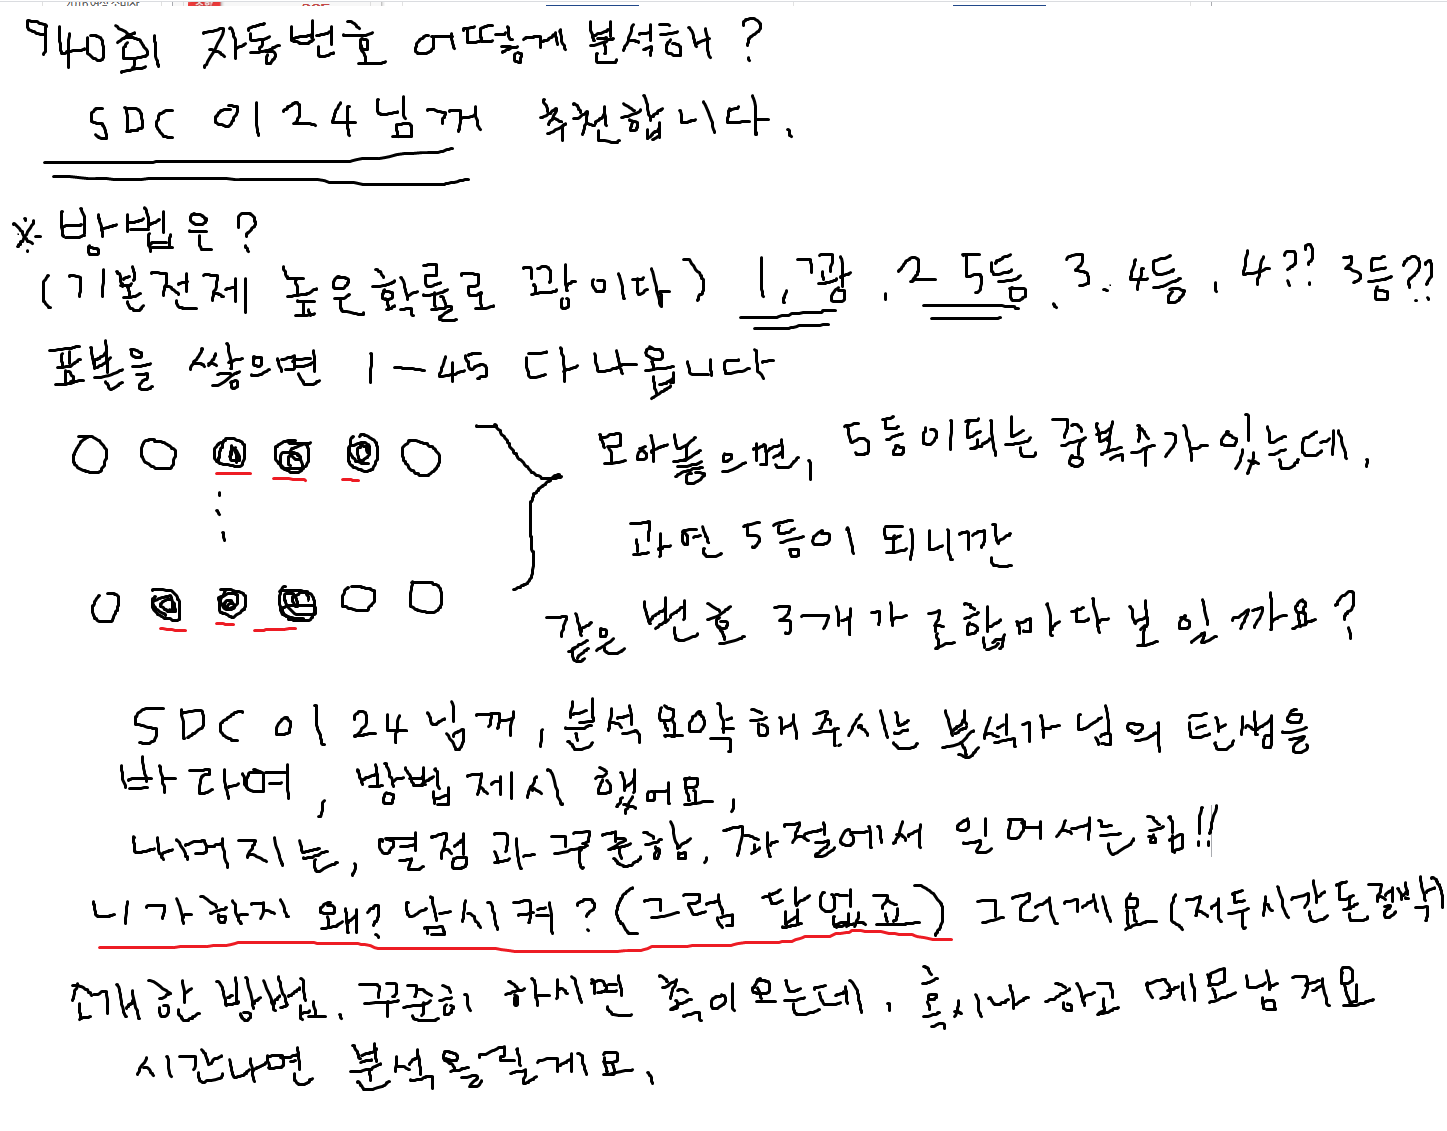 940회 자동번호 어떻게 분석해?
SDC 0124님꺼 추천합니다.
※ 방법은?
(기본전제 높은확률로 꽝이다) 1, 꽝. 2 5등. 3. 4등. 4?? 3등??
표본을 쌓으면 1-45 다나옵니다
모아놓으면, 5등이되는 중복수가 있는데.
과연 5등이 되니깐
같은 번호 3개가 조합마다 보일까요?
SDC 0124님꺼, 분석요약해주시는 분석가님의 탄생을
바라며, 방법제시 했어요,
나머지는, 열정과 꾸준함. 좌절에서 일어서는힘!!
니가하지 왜? 남시켜? (그럼 답없죠) 그러게요(저두시간돈절박)
소개한 방법. 꾸준히 하시면 촉이오는데. 혹시나 하고 메모남겨요
시간나면 분석올릴게요.